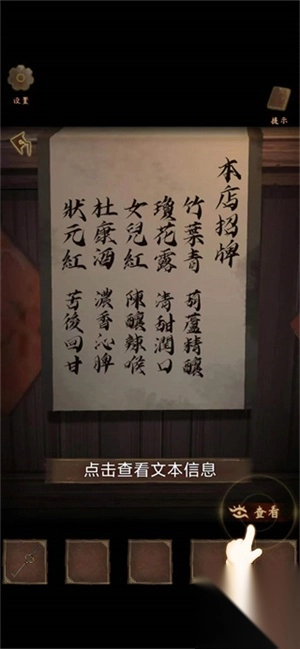 设置
提示
本店招牌
竹葉青 葫蘆精釀
瓊花露 清甜潤口
女兒紅 陳釀辣喉
杜康酒 濃香沁脾
狀元紅 苦後回甘
点击查看文本信息
查看